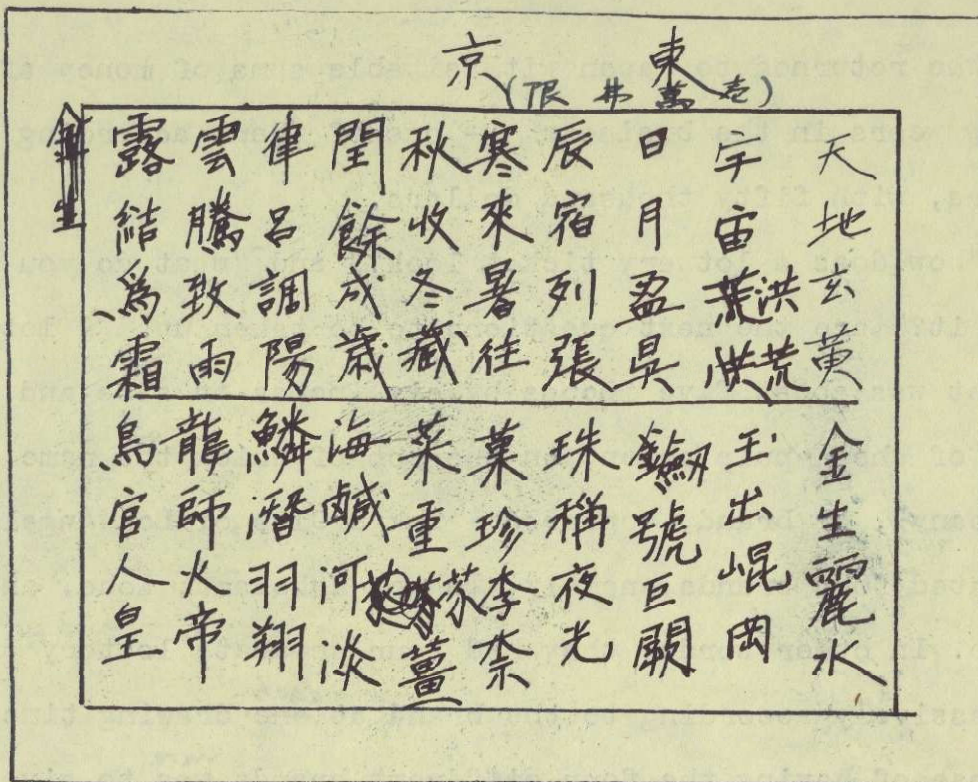 東京
天地玄黃
宇宙洪荒
日月盈昃
辰宿列張
寒來暑往
秋收冬藏
閏餘成歲
律呂調陽
雲騰致雨
露結爲霜
金生麗水
玉出崐岡
劒號巨闕
珠稱夜光
菓珍李柰
菜重芥薑
海鹹河淡
鱗潛羽翔
龍師火帝
鳥官人皇
生